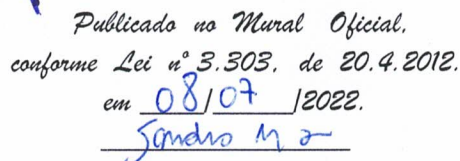 Publicado no Mural Oficial,
conforme Lei nº 3.303, de 20.4.2012.
em 08/07/2022.
Sandro